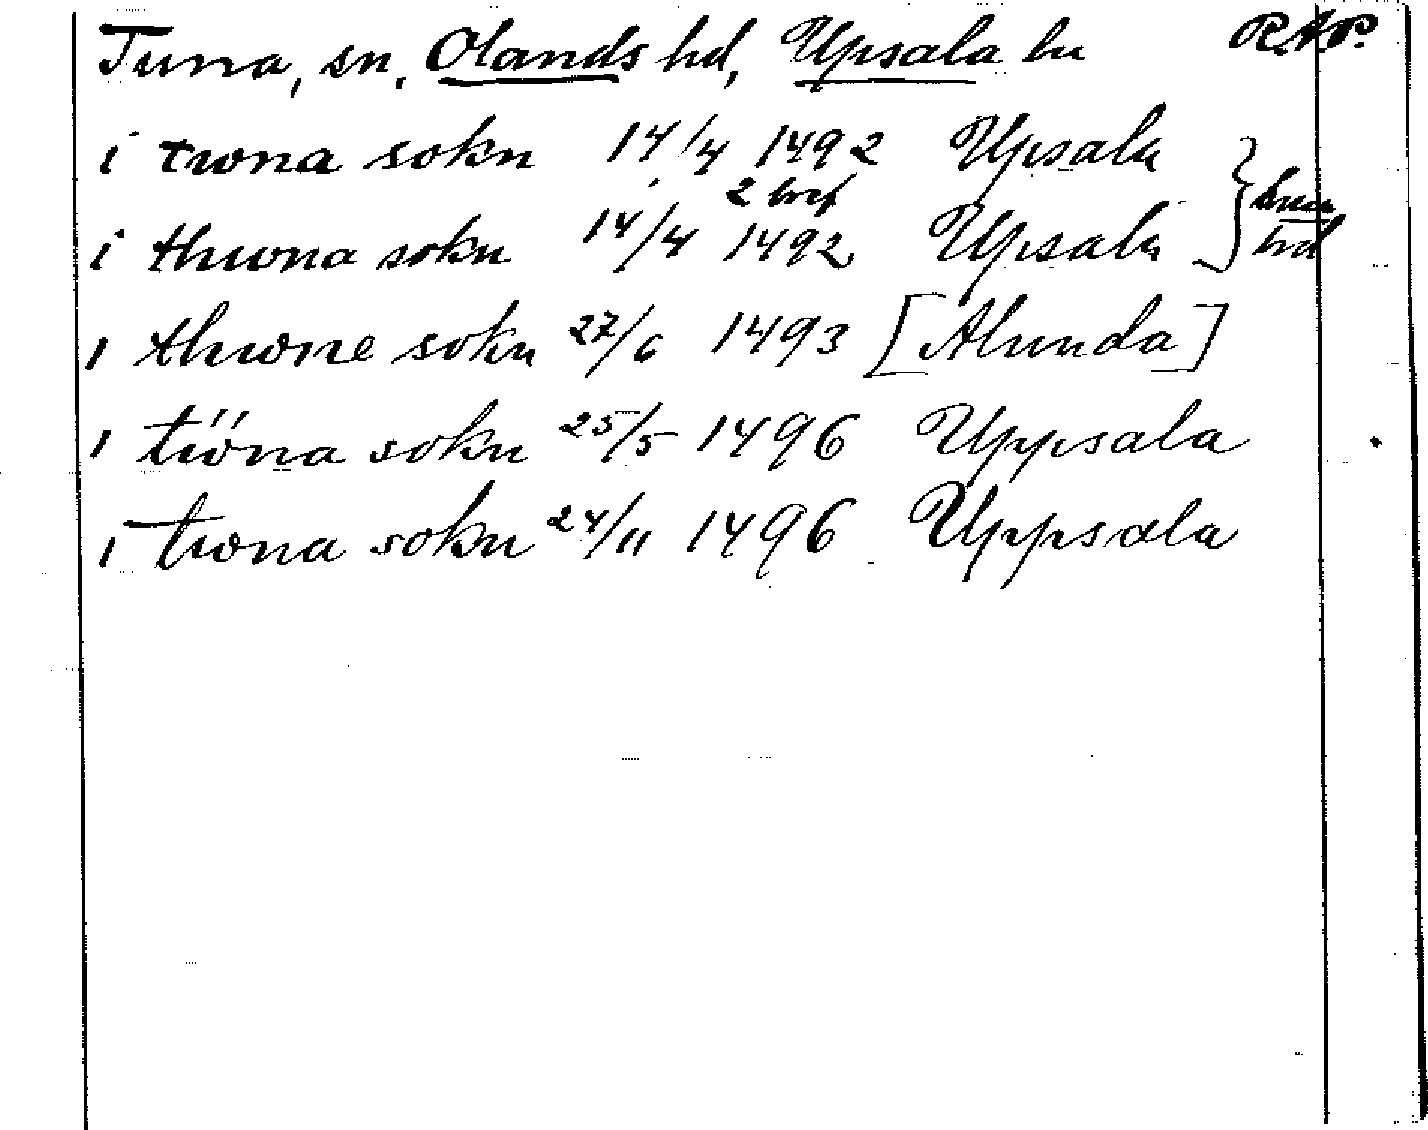 Tuna, sn, Olands hd, Upsala ln RAP.
i twna sokn 14/4 1492 Upsala
2 bref
i thwna sokn 14/4 1492 Upsala
i thwne sokn 27/6 1493 [Alunda]
i twna sokn 25/5 1496 Uppsala
i twna sokn 24/11 1496 Uppsala